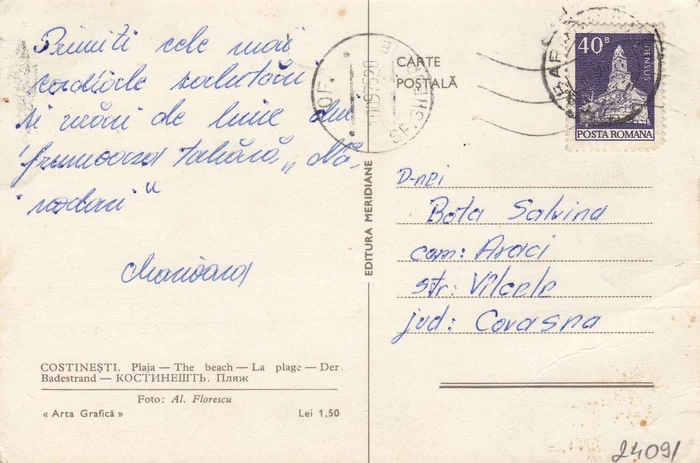 Primiti cele mai
cordiale salutări
si urări de bine din
frumoasa tabără „Nă-
vodari"
Marioara
COSTINEȘTI. Plaja — The beach — La plage — Der
Badestrand — КОСТИНЕШТЬ. Пляж
Foto: Al. Florescu
« Arta Grafică »
Lei 1,50
EDITURA MERIDIANE
CARTE
POSTALĂ
OF.
SF. GH
40 B
DENSUS
POSTA ROMANA
D-nei
Bota Salvina
com: Araci
str: Vîlcele
jud: Covasna
24091